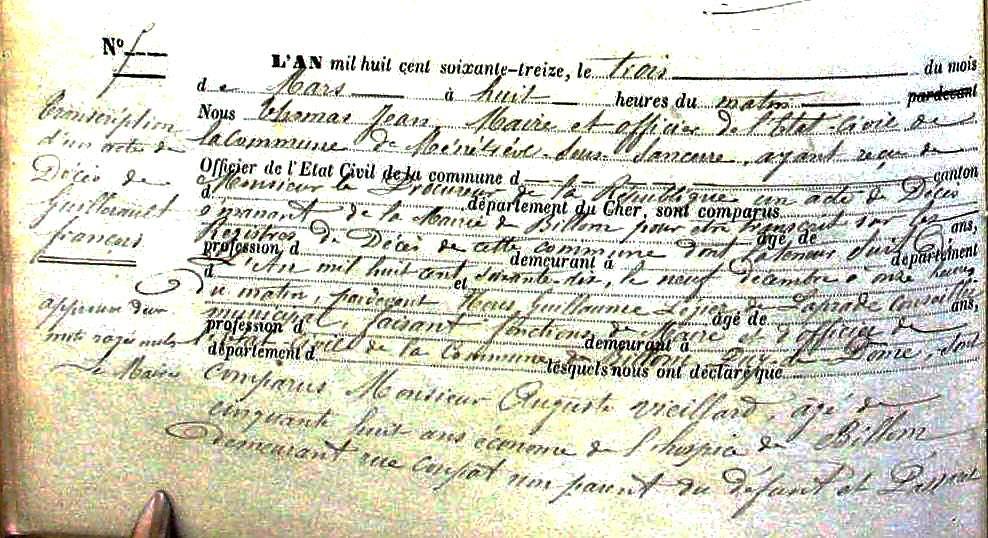 N° 7
Transcription
d'un acte de
Décès de
Guillerault
françois
approuvé deux
mots rayés nuls
Le Maire
L'AN mil huit cent soixante-treize, le trois du mois
d e Mars à huit heures du matin pardevant
Nous Thomas Jean, Maire et officier de l'Etat-Civil de
la commune de Ménétréol-Sous-Sancerre, ayant reçu de
Officier de l'Etat Civil de la commune d canton
Monsieur le Procureur de la République un acte de Décès
d département du Cher, sont comparus
émanant de la Mairie de Billom pour être transcrit sur les
âgé de ans,
Registres de Décès de cette commune dont la teneur suit
profession d demeurant à département
L'An mil huit cent soixante-dix, le neuf décembre à onze heures
d et
du matin, pardevant Nous Guillaume de conseiller
âgé de ans,
municipal, faisant fonctions de Maire et d'officier de
profession d demeurant à
l'Etat-Civil de la Commune de Billom, Puy de Dôme, sont
département d lesquels nous ont déclaré que
comparus Monsieur Auguste Vieillard, âgé de
cinquante huit ans économe de l'hospice de Billom
demeurant rue non parent du défunt et